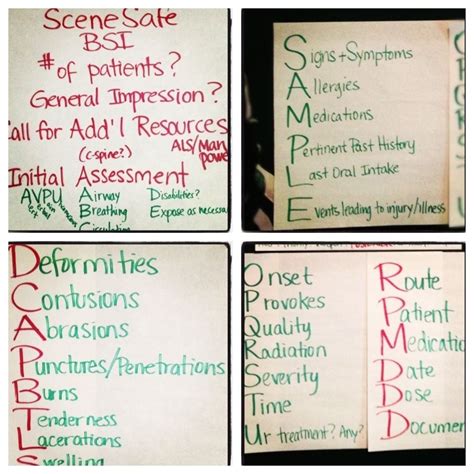 Scene Safe
BSI
# of patients?
General Impression?
Call for Add'l Resources
(c-spine?) ALS/Man power
Initial Assessment
AVPU Airway Disabilities?
Breathing Expose as necessa
Circulation
Signs + Symptoms
Allergies
Medications
Pertinent Past History
Last Oral Intake
Events leading to injury/illness
Deformities
Contusions
Abrasions
Punctures/Penetrations
Burns
Tenderness
Lacerations
Swelling
Onset
Provokes
Quality
Radiation
Severity
Time
Ur treatment? Any?
Route
Patient
Medicatio
Date
Dose
Documen